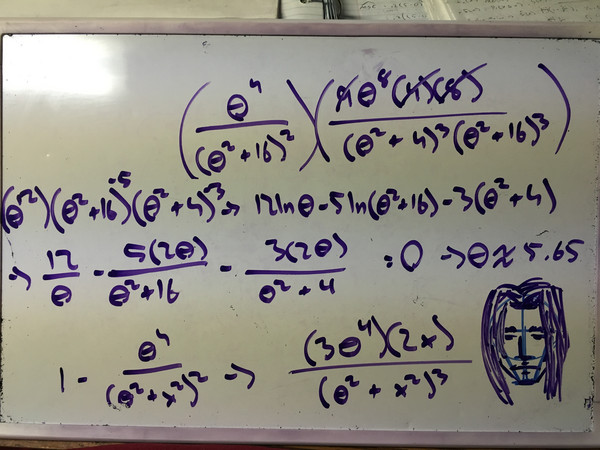 (θ⁴/(θ²+16)²)(4θ⁸(4)(8)/((θ²+4)³(θ²+16)³))
(θ¹²)(θ²+16)⁻⁵(θ²+4)⁻³→ 12lnθ-5ln(θ²+16)-3(θ²+4)
→ 12/θ - 5(2θ)/(θ²+16) - 3(2θ)/(θ²+4) =0 →θ≈5.65
1 - θ⁴/(θ²+x²)² → (3θ⁴)(2x)/(θ²+x²)³